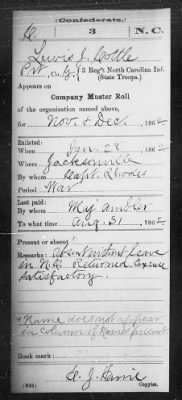 Confederate.
C 3 N. C.
Lewis J. Cottle
Pvt, Co. G, 3 Reg't North Carolina Inf.
(State Troops.)
Appears on
Company Muster Roll
of the organization named above,
for Nov. & Dec., 1862
Enlisted:
When Jan. 28, 1862
Where Jacksonville
By whom Capt. Rhodes
Period War
Last paid:
By whom Maj. Ambler
To what time Aug. 31, 1862
Present or absent
Remarks: Absent without leave
in N.C. Returned
satisfactory.
* Name does not appear
in column of names present
Book mark:
(642) Copyist.